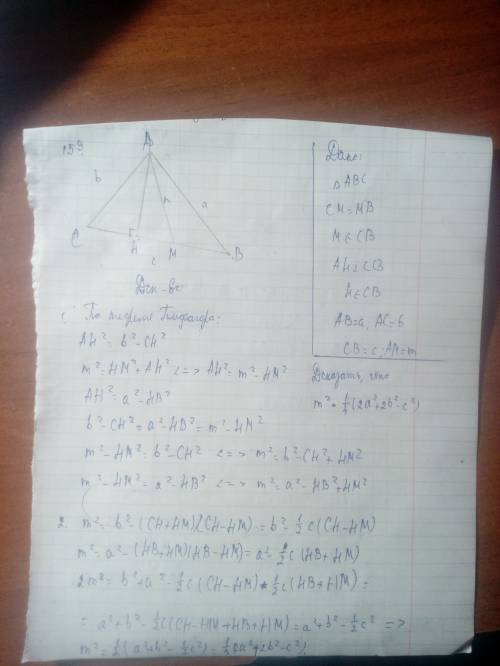 159
A
b
a
m
C
H
c
M
B
Дано:
△ABC
CM=MB
M∈CB
AH⊥CB
H∈CB
AB=a; AC=b
CB=c; AM=m
Доказать, что
m²=¼(2a²+2b²-c²)
Док-во:
1. По теореме Пифагора:
AH²=b²-CH²
m²=HM²+AH² <=> AH²=m²-HM²
AH²=a²-HB²
b²-CH²=a²-HB²=m²-HM²
m²-HM²=b²-CH² <=> m²=b²-CH²+HM²
m²-HM²=a²-HB² <=> m²=a²-HB²+HM²
2. m²=b²-(CH+HM)(CH-HM)=b²-½c(CH-HM)
m²=a²-(HB+HM)(HB-HM)=a²-½c(HB+HM)
2m²=b²+a²-½c(CH-HM)-½c(HB+HM)=
=a²+b²-½c(CH-HM+HB+HM)=a²+b²-½c² =>
m²=½(a²+b²-½c²)=¼(2a²+2b²-c²)